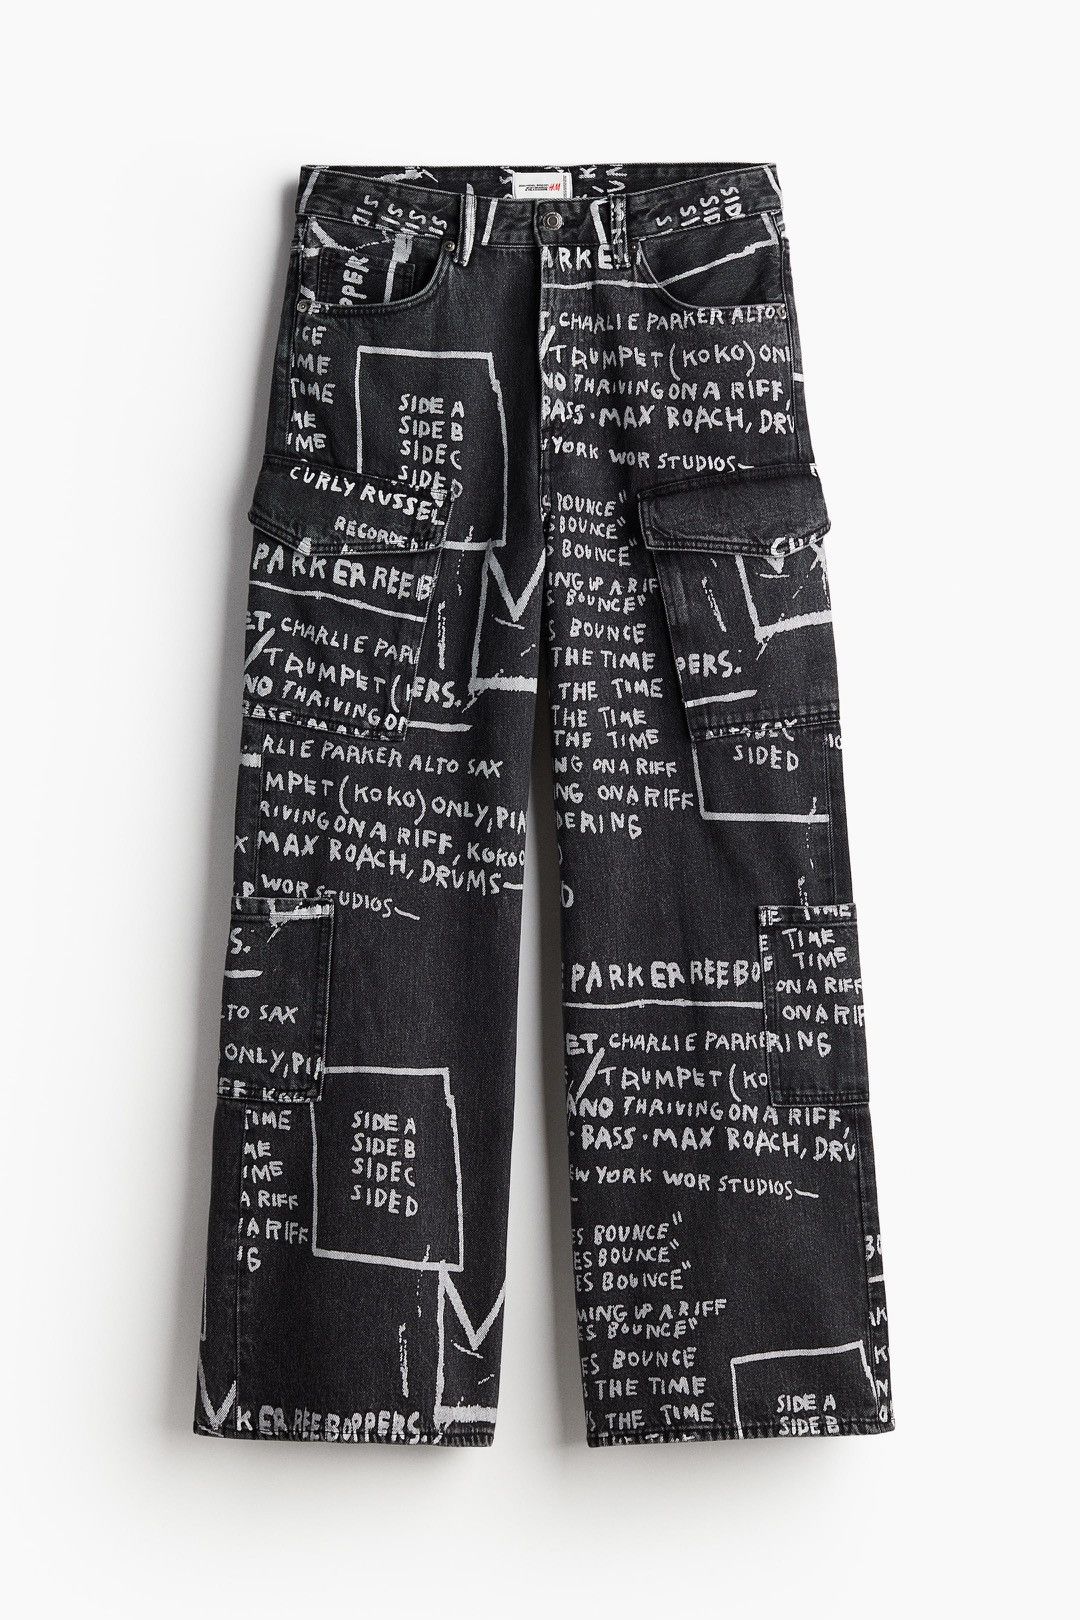 H&M
SIS
SIS
SIS
SIS
SIS
SID
ARKE
PPER
CHARLIE PARKER ALTO
TRUMPET (KOKO) ONL
NO THRIVING ON A RIFF,
BASS · MAX ROACH, DRU
YORK WOR STUDIOS—
ICE
IME
TIME
ME
IME
SIDE A
SIDE B
SIDE C
SIDE D
CURLY RUSSEL
RECORDE
PARKER REEB
ET, CHARLIE PAR
TRUMPET (
NO THRIVING ON
ERS.
BOUNCE"
BOUNCE"
S BOUNCE"
ING UP A RIF
S BOUNCE"
S BOUNCE
THE TIME
THE TIME
THE TIME
THE TIME
NG ON A RIFF
NG ON A RIFF
DERING
PERS.
SIDE D
RLIE PARKER ALTO SAX
MPET (KOKO) ONLY, PIA
RIVING ON A RIFF, KOKO
X MAX ROACH, DRUMS—
WOR STUDIOS—
S.
LTO SAX
ONLY, PI
TIME
TIME
TIME
ON A RIFF
ON A RIF
RING
PARKER REEBO
ET, CHARLIE PARKE
TRUMPET (KO
ANO THRIVING ON A RIFF,
· BASS · MAX ROACH, DRU
EW YORK WOR STUDIOS—
TIME
ME
IME
A RIFF
A RIFF
G
SIDE A
SIDE B
SIDE C
SIDE D
ES BOUNCE"
ES BOUNCE"
ES BOUNCE"
MING UP A RIFF
ES BOUNCE"
ES BOUNCE
THE TIME
S THE TIME
SIDE A
SIDE B
KER REEBOPPERS.